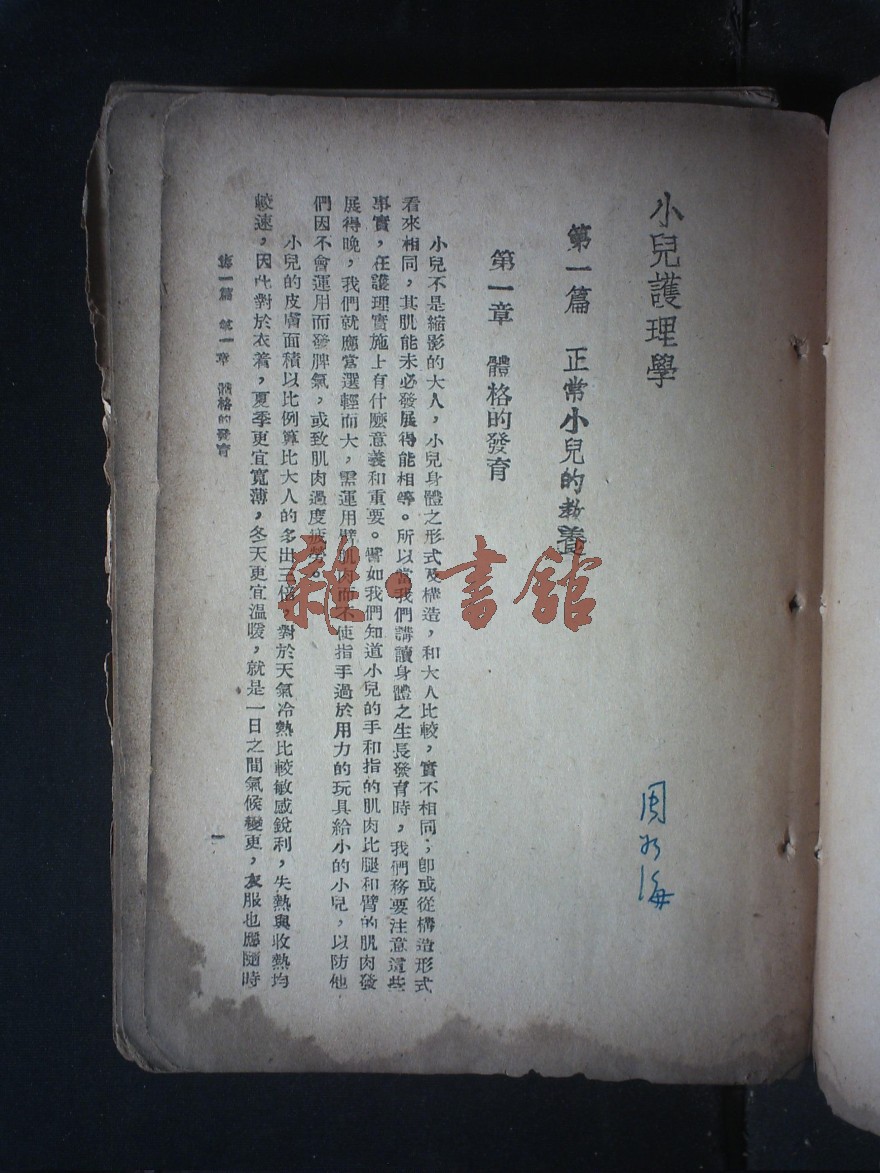 小兒護理學
第一篇　正常小兒的教養
第一章　體格的發育
小兒不是縮影的大人，小兒身體之形式及構造，和大人比較，實不相同；卽或從構造形式
看來相同，其肌能未必發展得能相等。所以當我們講讀身體之生長發育時，我們務要注意這些
事實，在護理實施上有什麼意義和重要。譬如我們知道小兒的手和指的肌肉比腿和臂的肌肉發
展得晚，我們就應當選輕而大，需運用臂肌肉而不使指手過於用力的玩具給小的小兒，以防他
們因不會運用而發脾氣，或致肌肉過度疲勞。
小兒的皮膚面積以比例算比大人的多出三倍，對於天氣冷熱比較敏感銳利，失熱與收熱均
較速，因此對於衣着，夏季更宜寬薄，冬天更宜溫暖，就是一日之間氣候變更，衣服也應隨時
第一篇　第一章　體格的發育
一
周
海
雜·書館